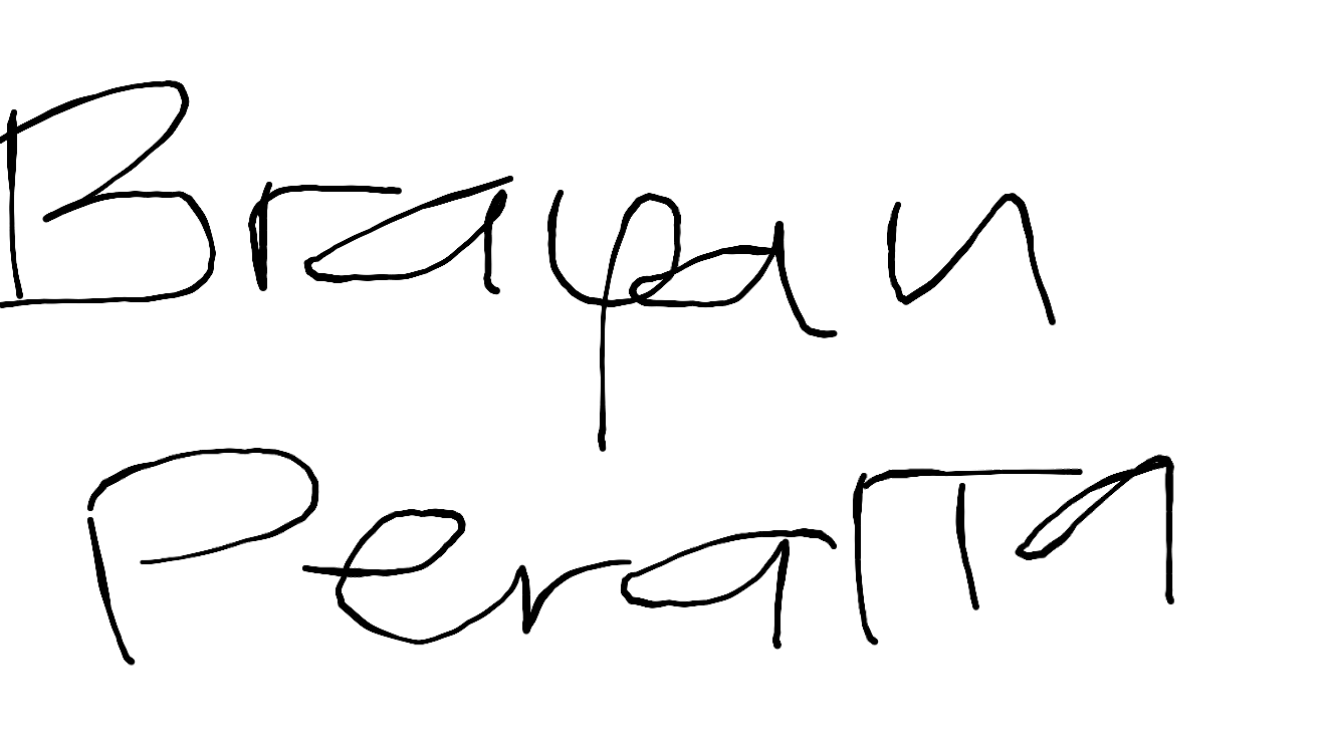 Brayan
Peralta